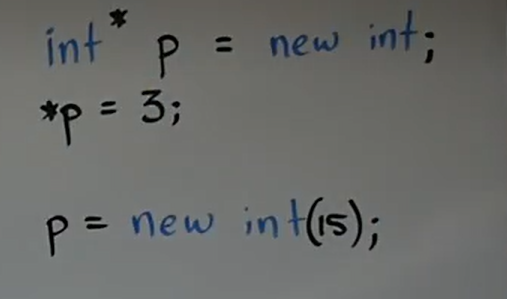 int* p = new int;
*p = 3;
p = new int(15);